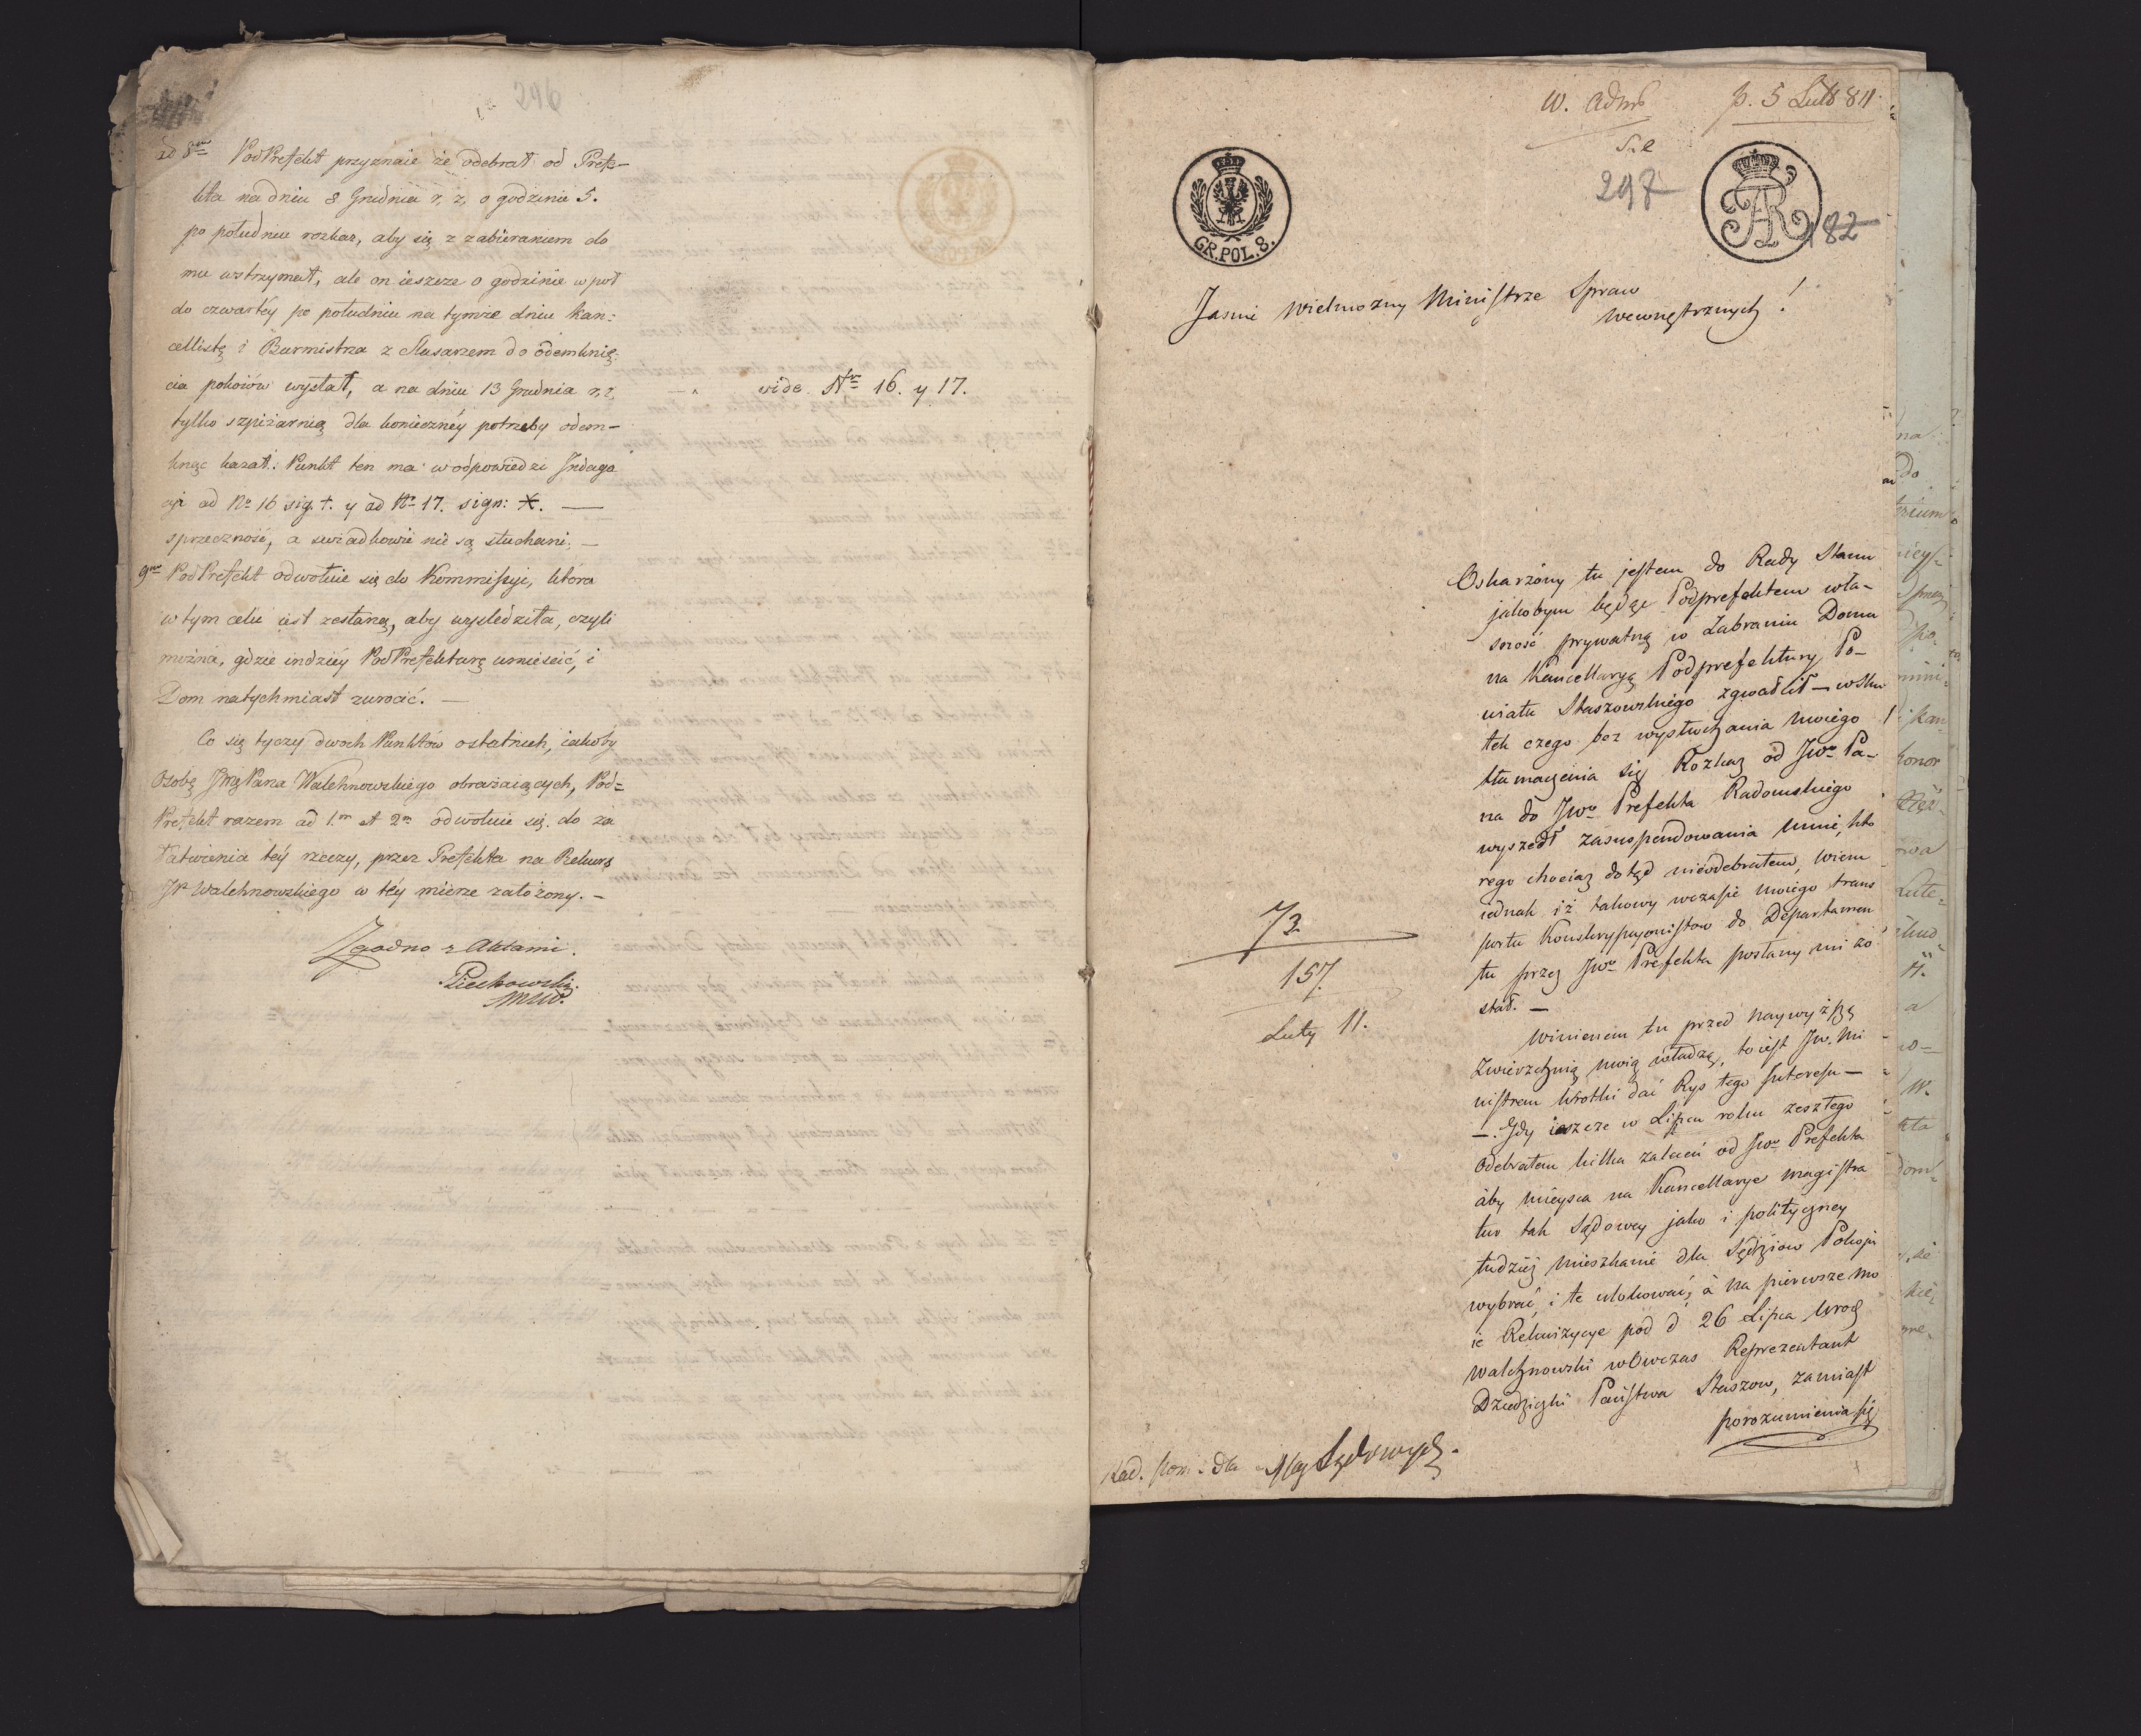 296
ad 8um PodPrefekt przyznaie że odebrał od Prefe-
kta na dniu 8 Grudnia r, z, o godzinie 5.
po południu rozkaz, aby się z zabieraniem do
mu wstrzymał, ale on ieszcze o godzinie wpoł
do czwartéy po południu na tymże dniu kan:
cellistę i Burmistrza z Slusarzem do odemknię:
cia pokoiów wysłał, a na dniu 13 Grudnia r, z,
vide Nr 16. y 17.
tylko szpiżarnią dla konieczney potrzeby odem-
knąc kazał. Punkt ten ma w odpowiedzi Indaga
cyi ad No 16 sig. †. y ad Nr 17. sign: X. —
sprzeczność, a swiadkowie nie są słuchani. —
9no PodPrefekt odwołuie się do Kommissyi, która
w tym celu iest zesłaną, aby wysledziła, czyli
można, gdzie indziéy PodPrefekturę umieścić, i
Dom natychmiast zwrocić. —
Co się tyczy dwoch Punktów ostatnich, iakoby
Osobę JmęPana Walchnowskiego obrażaiących, Pod=
Prefekt razem ad 1m et 2m odwołuie się do za
łatwienia téy rzeczy, przez Prefekta na Rekurs
JP Walchnowskiego w téy mierze założony. —
Zgodno z Aktami.
Piechowski
W. Adm
p. 5 Lut 811
297
182
GR.POL.8.
FAR
Jasnie Wielmożny Ministrze Spraw
Wewnętrznych!
Oskarżony tu jestem do Rady Stanu
jakobym będąc Podprefektem wła-
sność prywatną w Zabraniu Domu
na Kancellaryą Podprefektury Po-
wiatu Staszowskiego zgwałcił — wsku
tek czego bez wysłuchania moiego
tłumaczenia się Rozkaz od JWo Pa-
na do JWo Prefekta Radomskiego
wyszedł zasuspendowania mnie, któ
rego chociaz dotąd nieodebrałem, wiem
iednak iż takowy wczasie moiego trans
portu Konskrypcyonistow do Departamen
tu przez JWo Prefekta posłany mi zo
stał. —
Winienem tu przed naywyższą
Zwierzchnią moią władzą, toiest JW. Mi
nistrem krotki dać Rys tego Interesu —
—. Gdy ieszcze w Lipcu roku zeszłego
odebrałem kilka zaleceń od JWo Prefekta
aby mieysca na Kancellarye magistra
tur tak Sądowey jako i polityczney
tudzież mieszkanie dla Sędziow Pokoju
wybrać, i te ulokować, a na pierwsze mo
ie Rekwizycye pod d 26 Lipca Uroz
Walchnowski wówczas Reprezentant
Dziedziczki Państwa Staszow, zamiast
porozumienia się
73
157.
Luty 11.